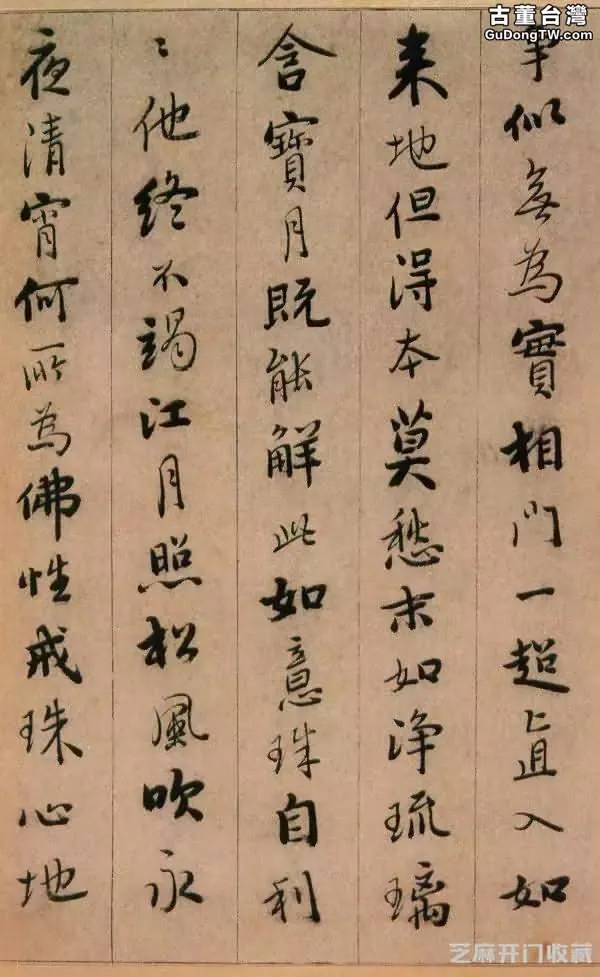 古董台灣
GuDongTW.com
争似無為實相門一超直入如
来地但得本莫愁末如浄琉璃
含寶月既能解此如意珠自利
〻他終不竭江月照松風吹永
夜清宵何所為佛性戒珠心地
芝麻开门收藏